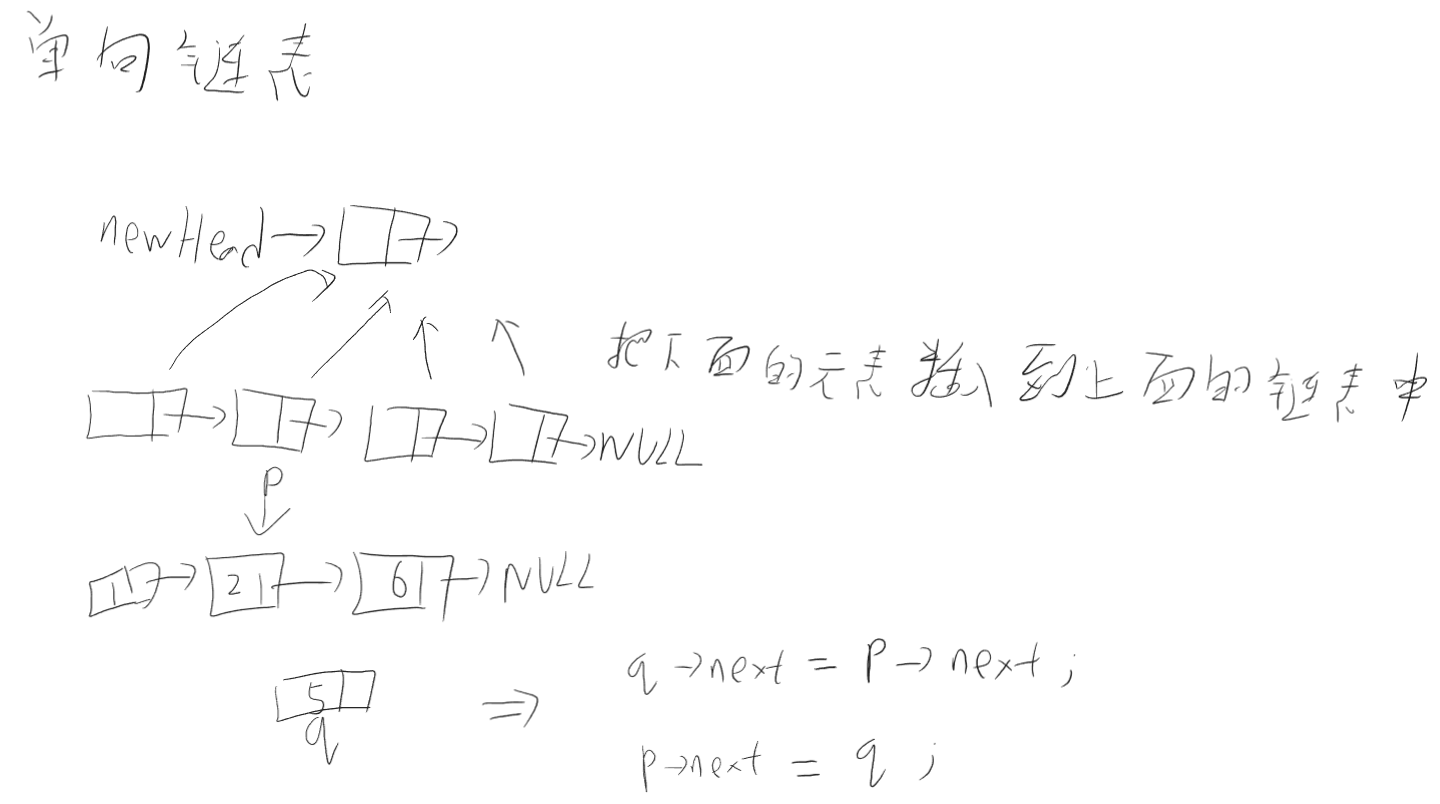 单向链表
newHead
把下面的元素插入到上面的链表中
NULL
p
1 2 6 NULL
5
q
q->next = p->next;
p->next = q;